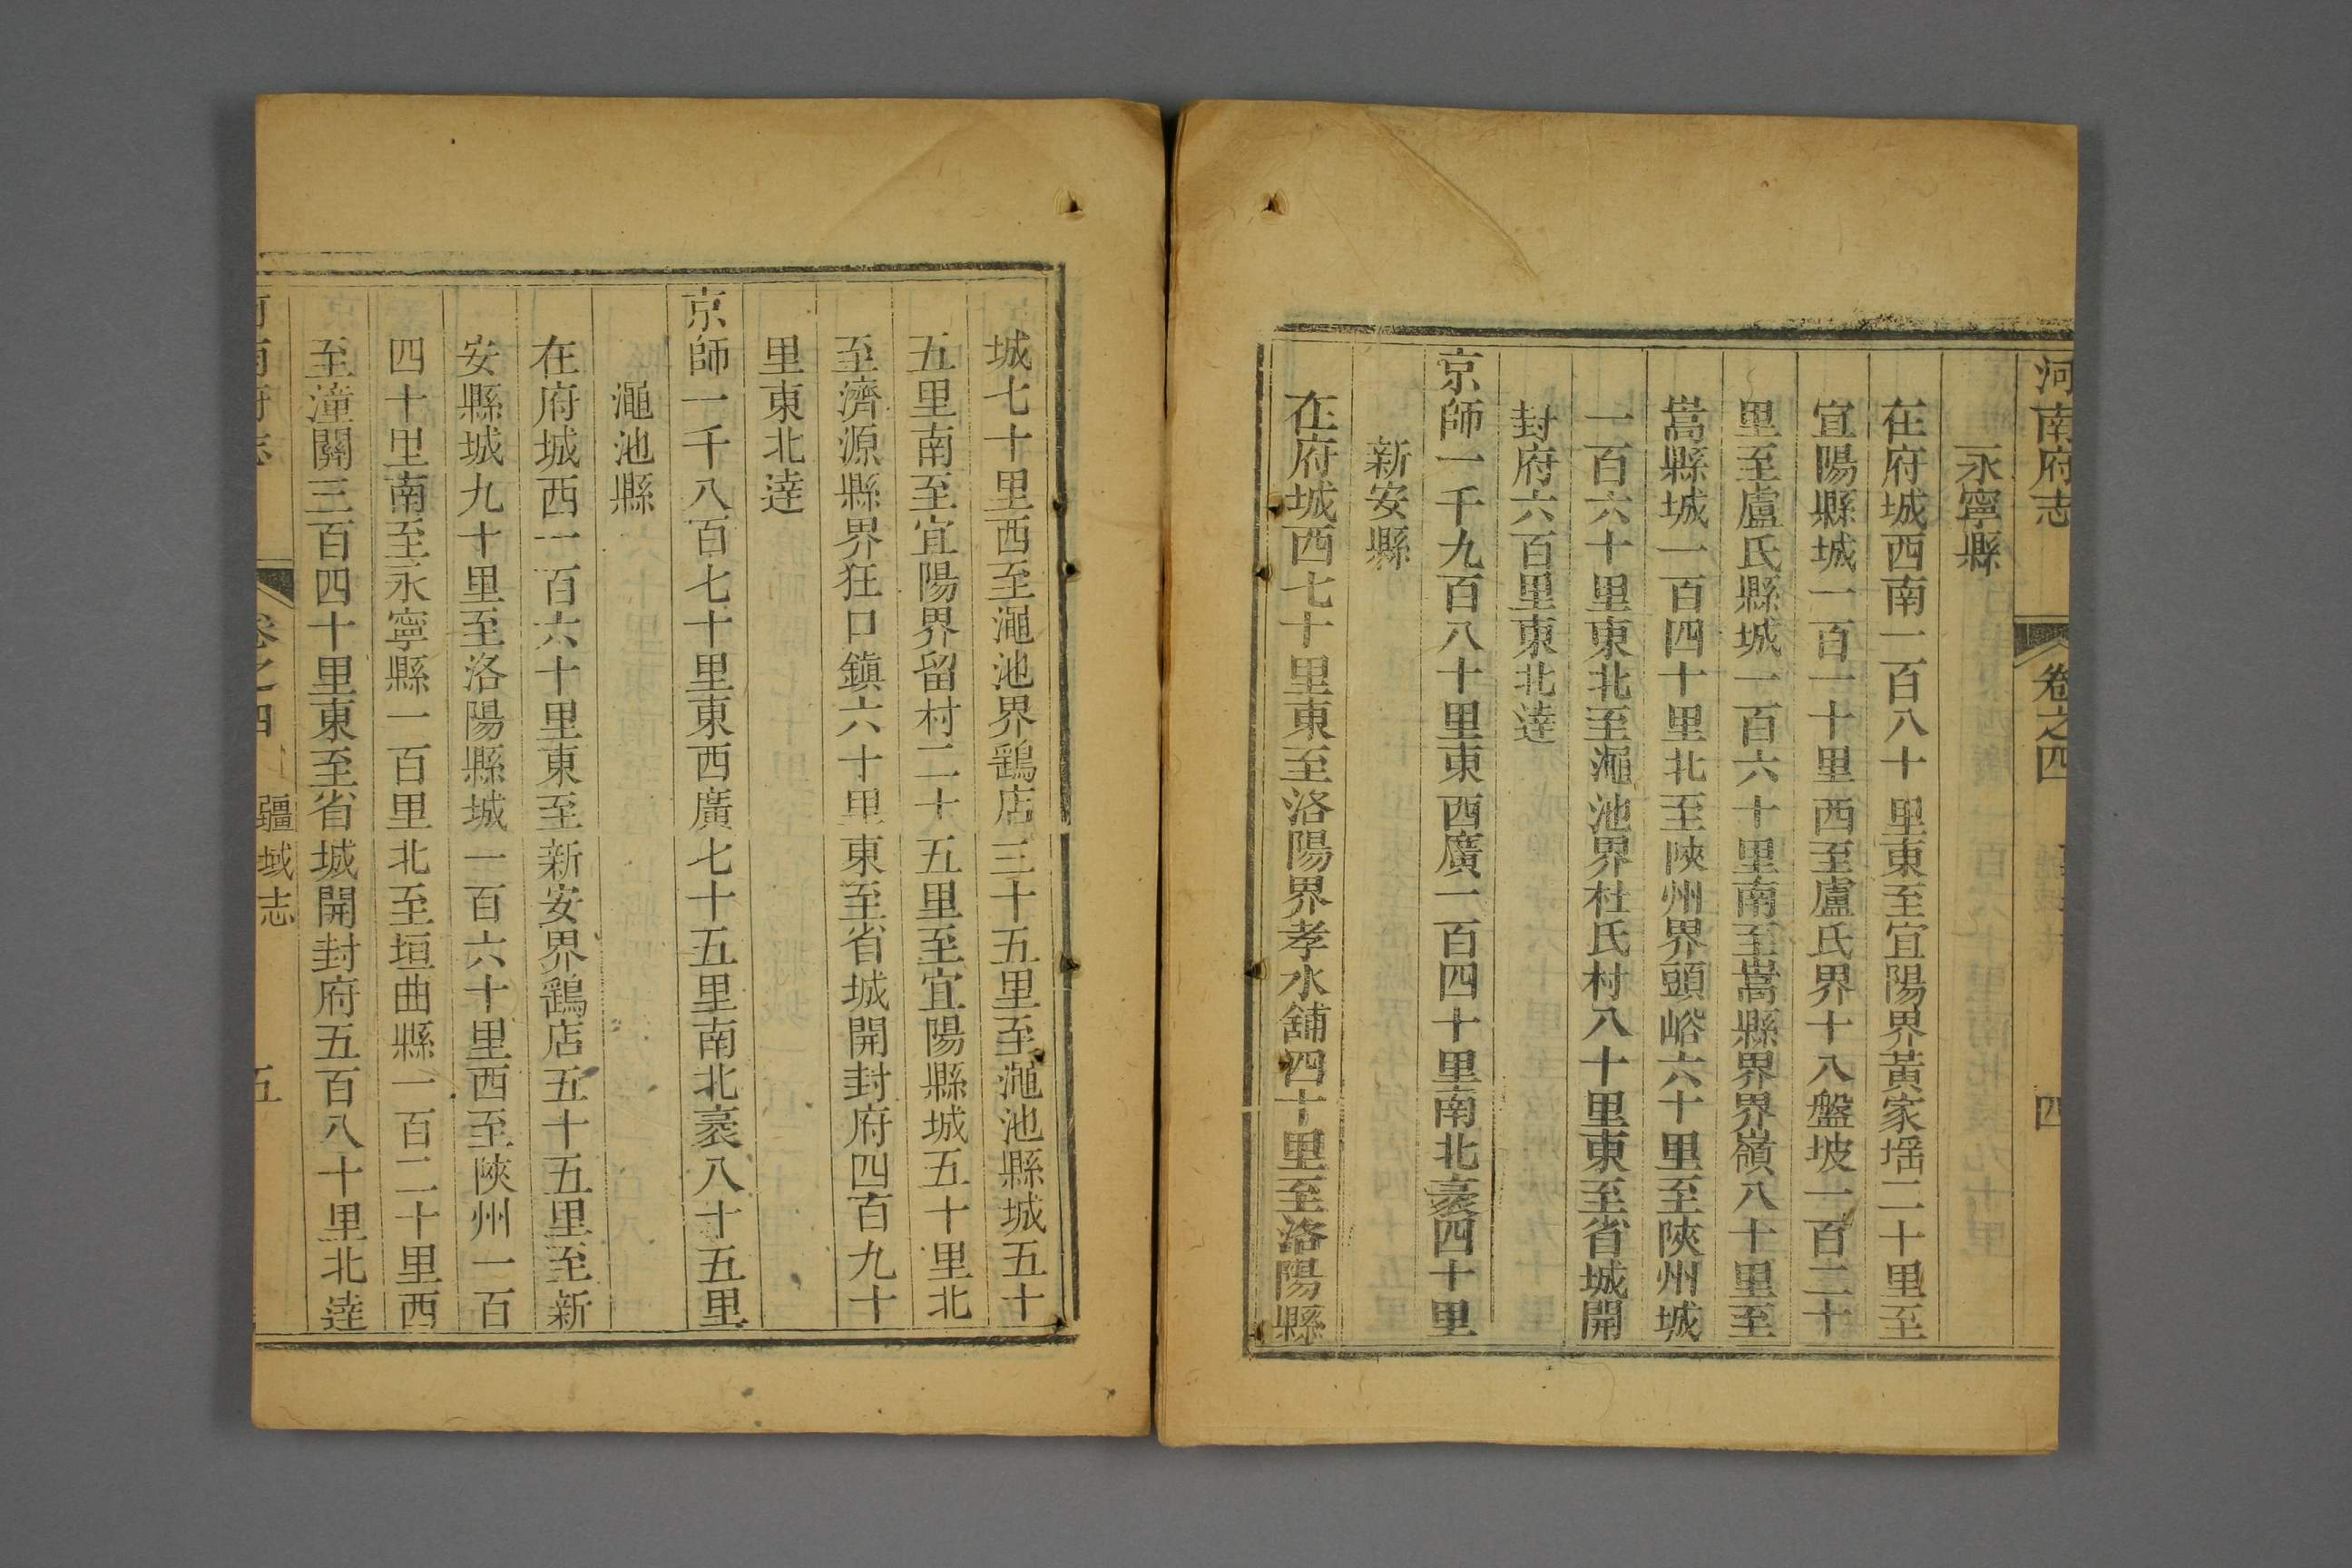 河南府志 卷之四 四
永寧縣
在府城西南一百八十里東至宜陽界黃家堖二十里至
宜陽縣城一百一十里西至盧氏界十八盤坡一百二十
里至盧氏縣城一百六十里南至嵩縣界界嶺八十里至
嵩縣城一百四十里北至陝州界頭峪六十里至陝州城
一百六十里東北至澠池界杜氏村八十里東至省城開
封府六百里東北逹
京師一千九百八十里東西廣一百四十里南北袤四十里
新安縣
在府城西七十里東至洛陽界孝水舖四十里至洛陽縣
城七十里西至澠池界鷂店三十五里至澠池縣城五十
五里南至宜陽界留村二十五里至宜陽縣城五十里北
至濟源縣界狂口鎮六十里東至省城開封府四百九十
里東北逹
京師一千八百七十里東西廣七十五里南北袤八十五里
澠池縣
在府城西一百六十里東至新安界鷂店五十五里至新
安縣城九十里至洛陽縣城一百六十里西至陝州一百
四十里南至永寧縣一百里北至垣曲縣一百二十里西
至潼關三百四十里東至省城開封府五百八十里北逹
河南府志 卷之四 疆域志 五